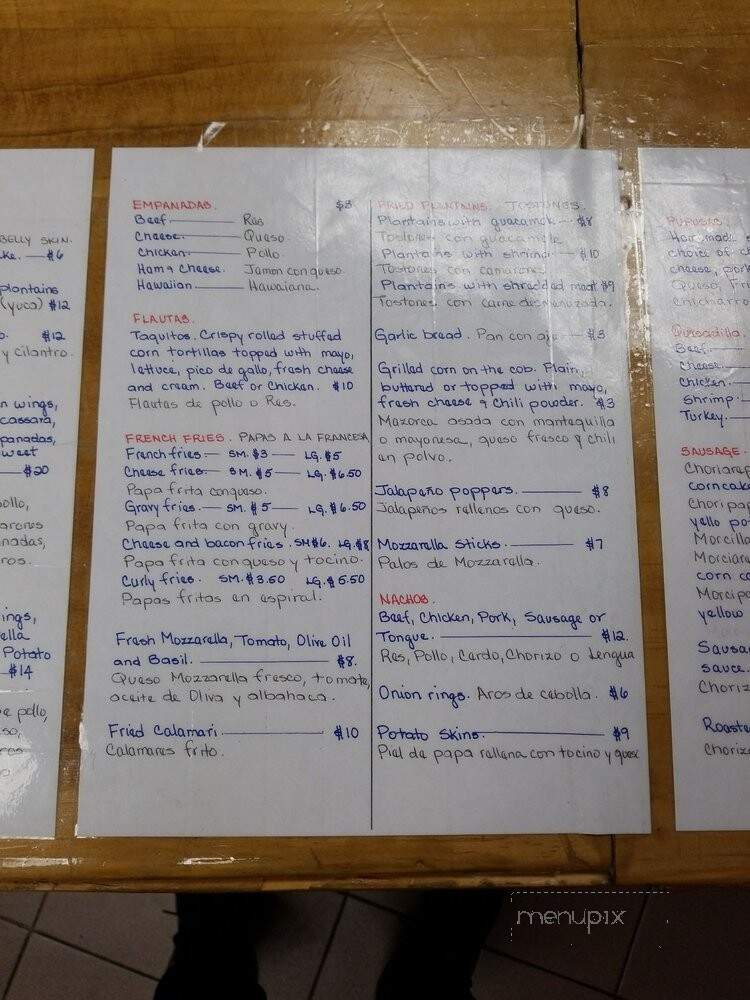 BELLY SKIN.
ke. — $6
plantains
(yuca) $12
o. $12
y cilantro.
n wings,
cassara,
panadas,
weet
— $20
ollo,
arones
nadas,
ros.
ings,
ella
Potato
— $14
e pollo,
so,
ros
o
EMPANADAS. $3
Beef — Res
Cheese. — Queso.
Chicken. — Pollo
Ham & Cheese. Jamon con queso.
Hawaiian — Hawaiana.
FLAUTAS.
Taquitos. Crispy rolled stuffed
corn tortillas topped with mayo,
lettuce, pico de gallo, fresh cheese
and cream. Beef or Chicken. $10
Flautas de pollo o Res.
FRENCH FRIES. PAPAS A LA FRANCESA
French fries — SM. $3 — LG. $5
Cheese fries. — SM. $5 — LG. $6.50
Papa frita con queso.
Gravy fries. — SM. $5 — LG. $6.50
Papa frita con gravy.
Cheese and bacon fries. SM $6. LG. $8
Papa frita con queso y tocino.
Curly fries. SM. $3.50 LG. $5.50
Papas fritas en espiral.
Fresh Mozzarella, Tomato, Olive Oil
and Basil. — $8.
Queso Mozzarella fresco, tomate,
aceite de Oliva y albahaca.
Fried Calamari — $10
Calamares frito.
FRIED PLANTAINS. TOSTONES.
Plantains with guacamole — $8
Tostones con guacamole
Plantains with shrimp — $10
Tostones con camarones
Plantains with shredded meat $9
Tostones con carne desmenuzada.
Garlic bread. Pan con ajo — $3
Grilled corn on the cob. Plain,
buttered or topped with mayo,
fresh cheese & chili powder. $3
Mazorca asada con mantequilla
o mayonesa, queso fresco y chili
en polvo.
Jalapeño poppers. — $8
Jalapeños rellenos con queso.
Mozzarella Sticks. — $7
Palos de Mozzarella.
NACHOS.
Beef, Chicken, Pork, Sausage or
Tongue. — $12.
Res, Pollo, Cerdo, Chorizo o Lengua
Onion rings. Aros de cebolla. $6
Potato Skins. — $9
Piel de papa rellena con tocino y queso
PUPUSAS.
Home made
choice of ch
cheese, pork
Queso, Fri
chicharro
Quesadilla.
Beef.
Cheese.
Chicken.
Shrimp.
Turkey.
SAUSAGE.
Choriarep
corncake
Choripap
yello po
Morcilla
Morciare
corn ca
Morcipa
yellow
Sausa
sauce.
Choriz
Roaste
Choriz
menupix